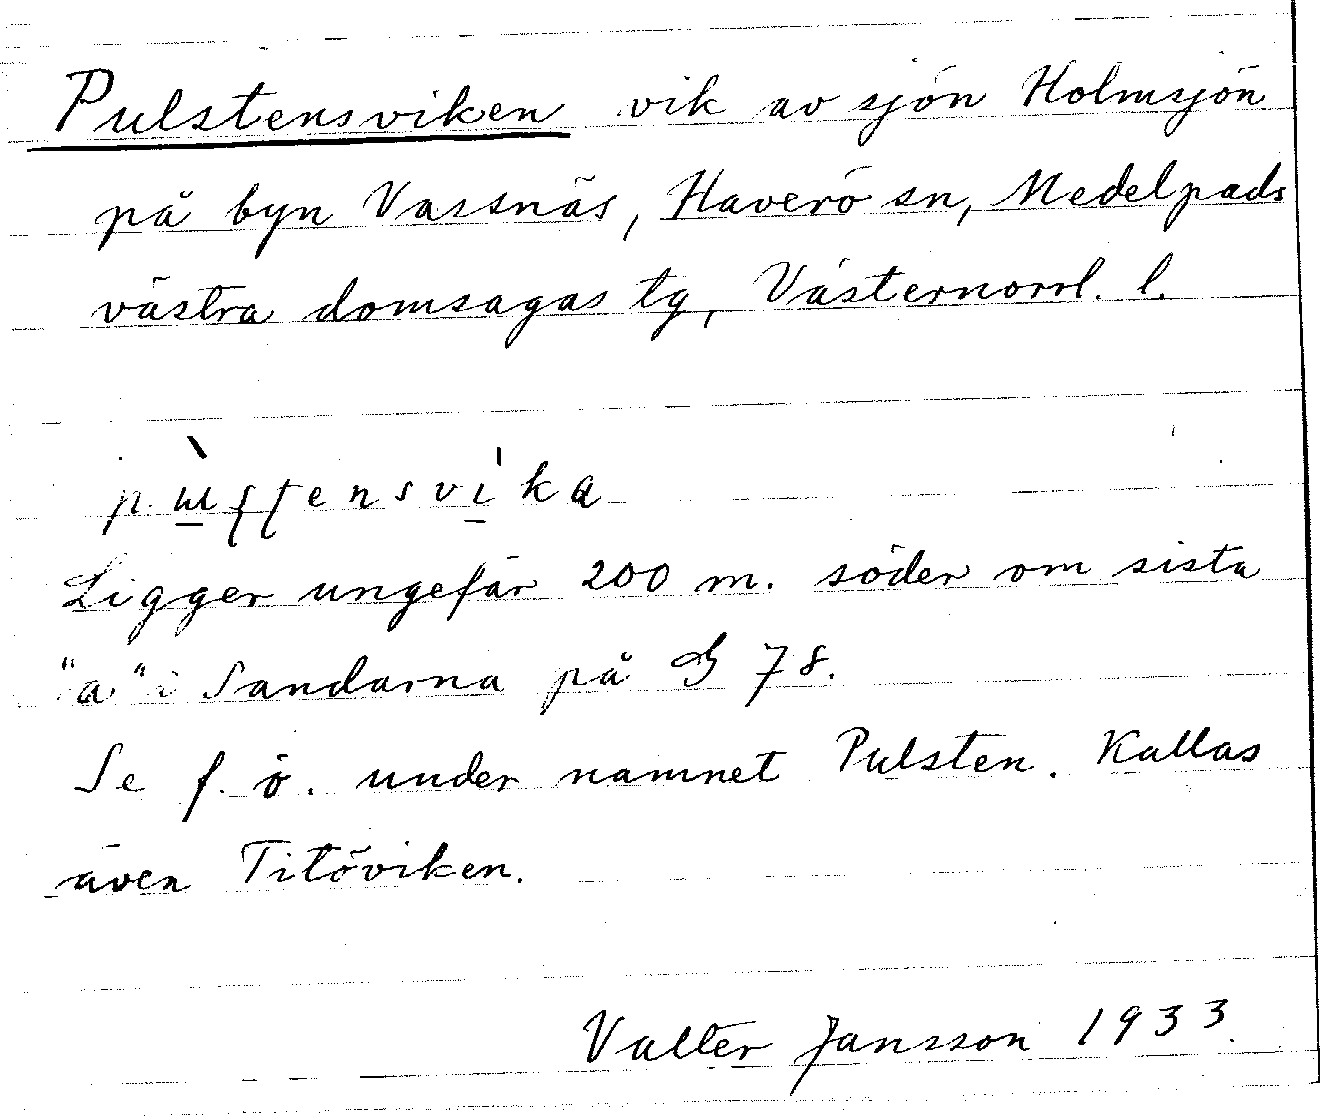 Pulstensviken vik av sjön Holmsjön
på byn Vassnäs, Haverö sn, Medelpads
västra domsagas tg, Västernorrl. l.
Ligger ungefär 200 m. söder om sista
"a" i Sandarna på G 78.
Se f. ö. under namnet Pulsten. Kallas
även Titöviken.
Valter Jansson 1933.